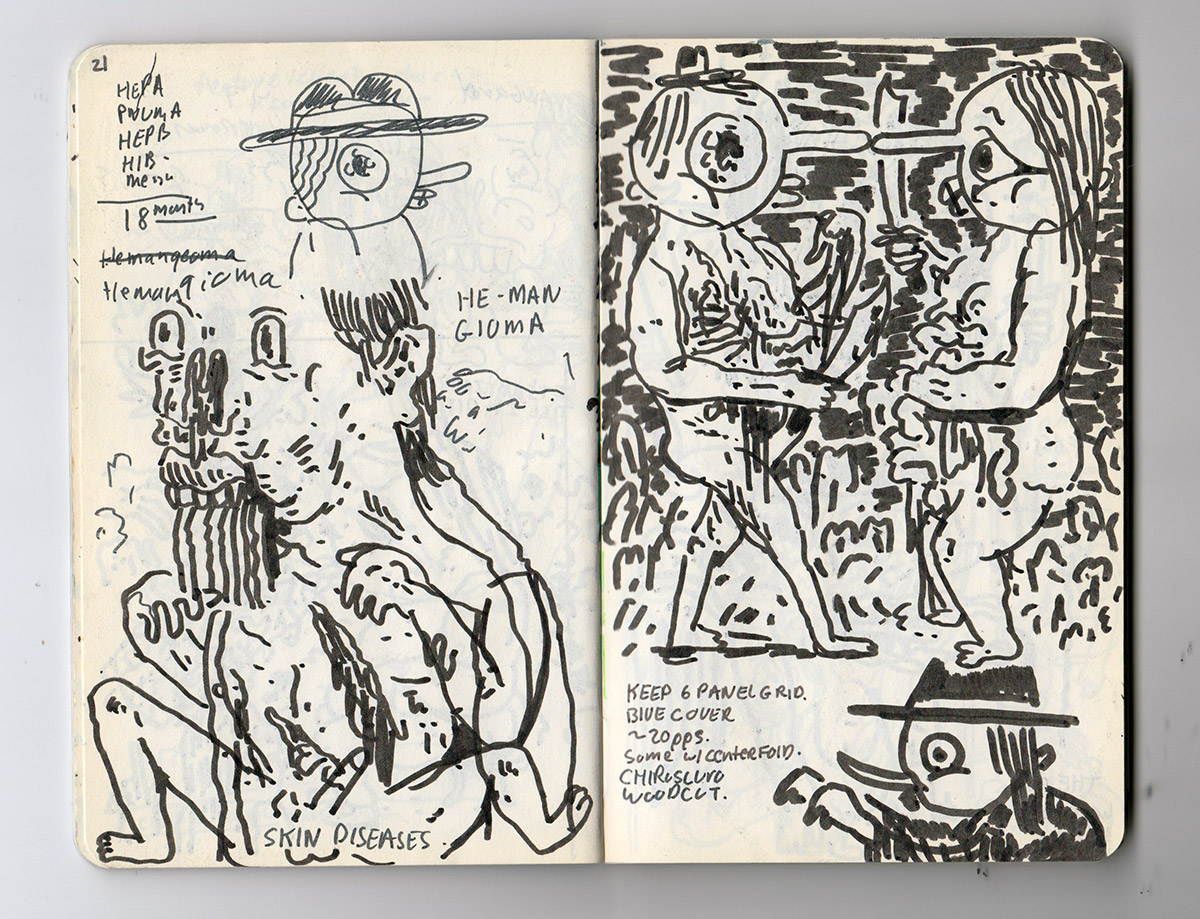 21
HEPA
PNUMA
HEPB
HIB-
18 month
Hemangeoma
Hemangioma
HE-MAN
GIOMA
SKIN DISEASES.
KEEP 6 PANEL GRID.
BLUE COVER
~20pps.
Some w/ CENTERFOLD.
CHIROSCURO
WOODCUT.